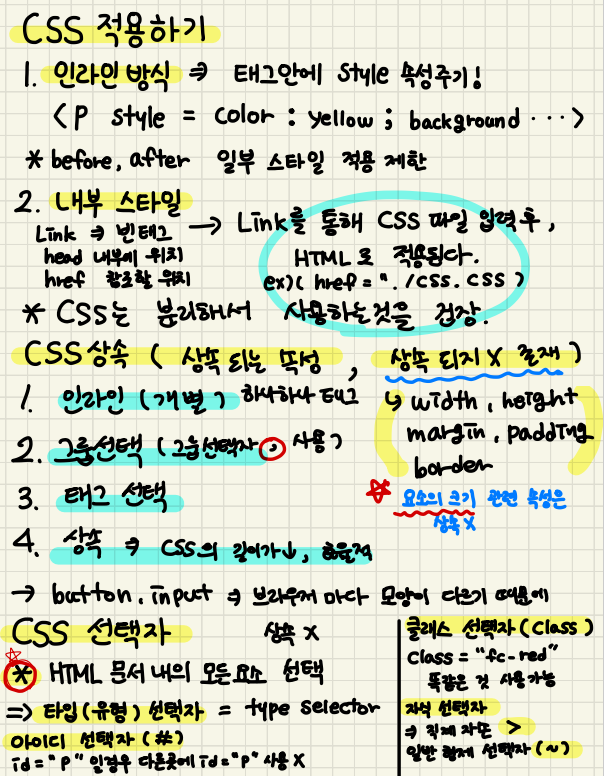 CSS 적용하기
1. 인라인 방식 ⇒ 태그안에 style 속성주기!
<P style = color : yellow ; background ··· >
* before, after 일부 스타일 적용 제한
2. 내부 스타일
Link ⇒ 빈태그
head 내부에 위치
href 참조할 위치
→ Link를 통해 CSS 파일 입력 후,
HTML로 적용된다.
ex) ( href = "./css.css )
* CSS는 분리해서 사용하는것을 권장.
CSS 상속 ( 상속 되는 속성 , 상속 되지 X 존재 )
1. 인라인 (개별) 하나하나 태그
2. 그룹선택 (그룹선택자 , 사용)
3. 태그 선택
4. 상속 ⇒ CSS의 길이가↓, 효율적
↳ width, height
margin, padding
border
☆ 요소의 크기 관련 속성은
상속 X
→ button, input ⇒ 브라우저 마다 모양이 다르기 때문에
상속 X
CSS 선택자
☆ * HTML 문서 내의 모든요소 선택
=> 타입(유형) 선택자 = type selector
아이디 선택자 (#)
id = "P" 일경우 다른곳에 id="P" 사용 X
클래스 선택자 (Class)
Class = "fc-red"
똑같은 것 사용가능
자식 선택자
⇒ 직계 자손 >
일반 형제 선택자 (~)